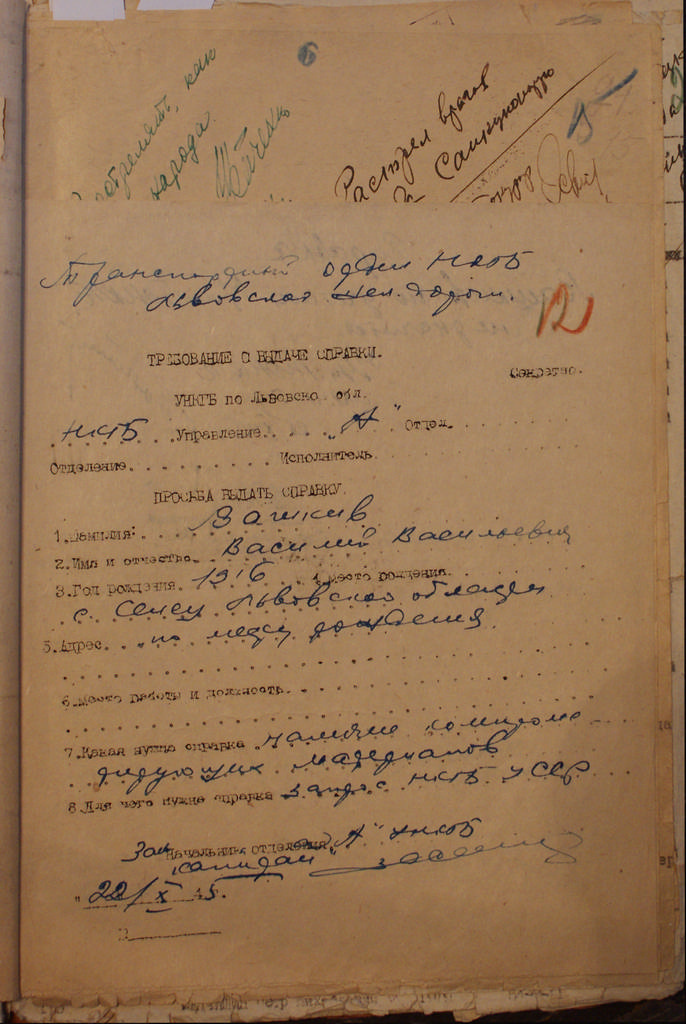 6
как
народа.
Расстрел врагов
Санкционирую
Транспортный отдел НКГБ
Львовской жел дороги.
12
ТРЕБОВАНИЕ О ВЫДАЧЕ СПРАВКИ.
Секретно.
УНКГБ по Львовско обл.
НКГБ Управление "А" Отдел
Отделение Исполнитель
ПРОСЬБА ВЫДАТЬ СПРАВКУ
1.Фамилия:
2.Имя и отчество Василий Васильевич
3.Год рождения 1916 4.Место рождения
с. Львовской области
5.Адрес по месту рождения
6.Место работы и должность.
7.Какая нужно справка наличие компроме-
тирующих материалов
8.Для чего нужно справка запрос НКГБ УССР
Зам Начальник отделения "А" УНКГБ
капитан
"22/X 45.